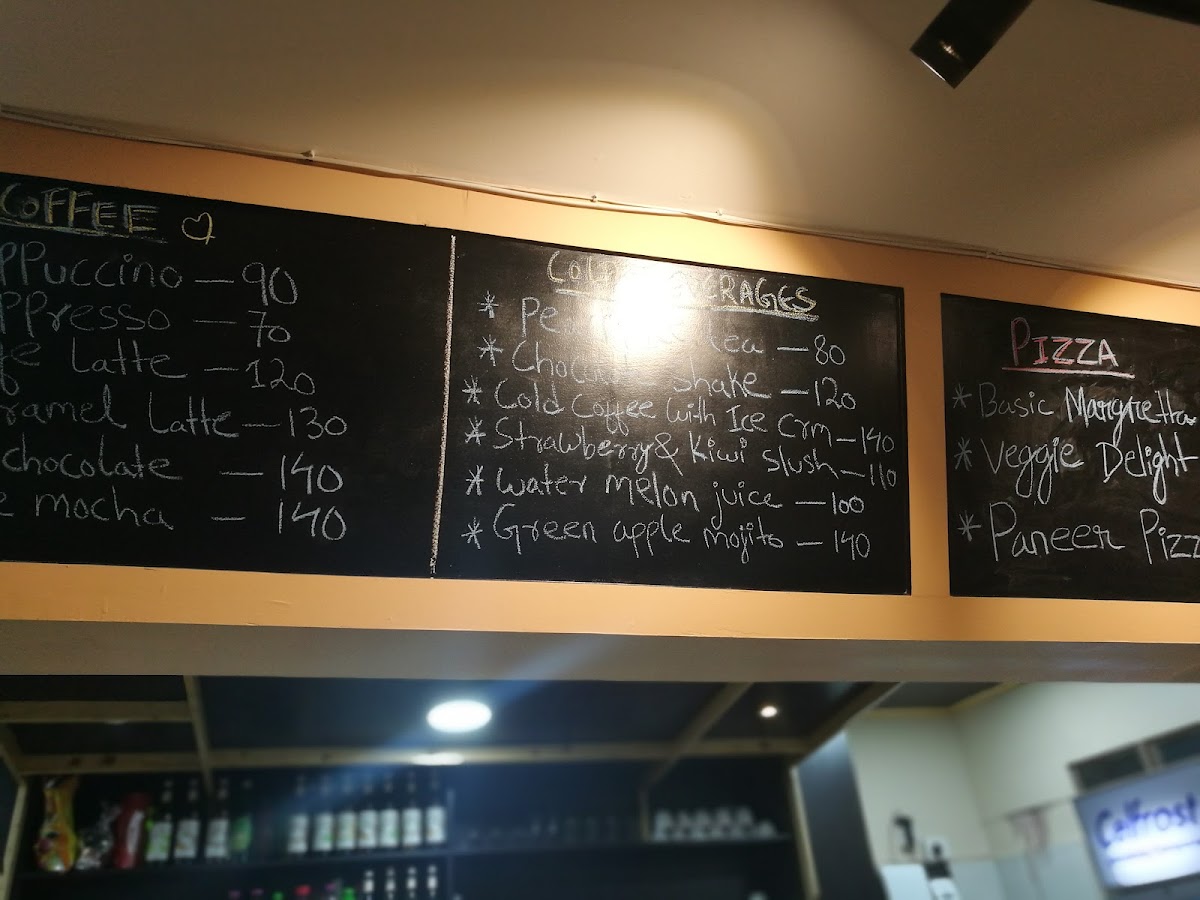 COFFEE
ppuccino — 90
ppresso — 70
fe Latte — 120
ramel Latte — 130
chocolate — 140
e mocha — 140
BEVERAGES
* tea — 80
* shake — 120
* Cold Coffee with Ice crm — 140
* Strawberry & kiwi slush — 110
* Water melon juice — 100
* Green apple mojito — 140
PIZZA
* Basic Margretta
* Veggie Delight
* Paneer Pizz
Celfrost